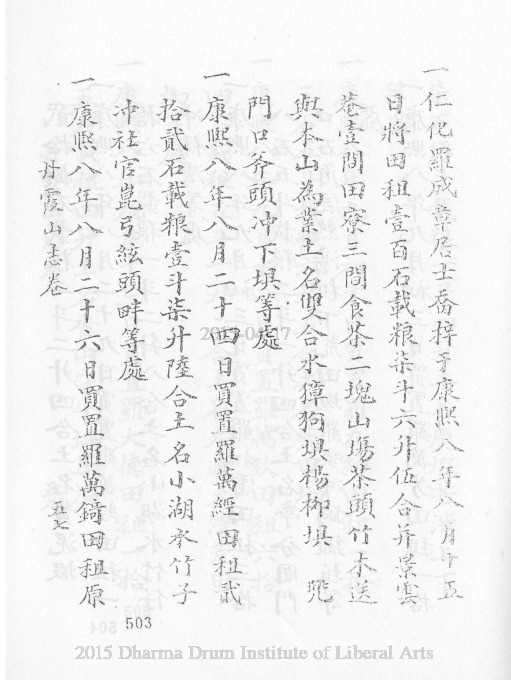 一仁化羅成章居士喬梓于康熙八年八月十五
日將田租壹百石載粮柒斗六升伍合并景雲
菴壹間田寮三間食茶二塊山塲茶頭竹木送
與本山為業土名雙合水獐狗垻楊柳垻 兜
門口斧頭冲下垻等處
一康熙八年八月二十四日買置羅萬經田租貳
拾貳石載粮壹斗柒升陸合土名小湖朩竹子
冲社官崑弓絃頭畔等處
一康熙八年八月二十六日買置羅萬錡田租原
丹霞山志卷 五七
503
2015 Dharma Drum Institute of Liberal Arts